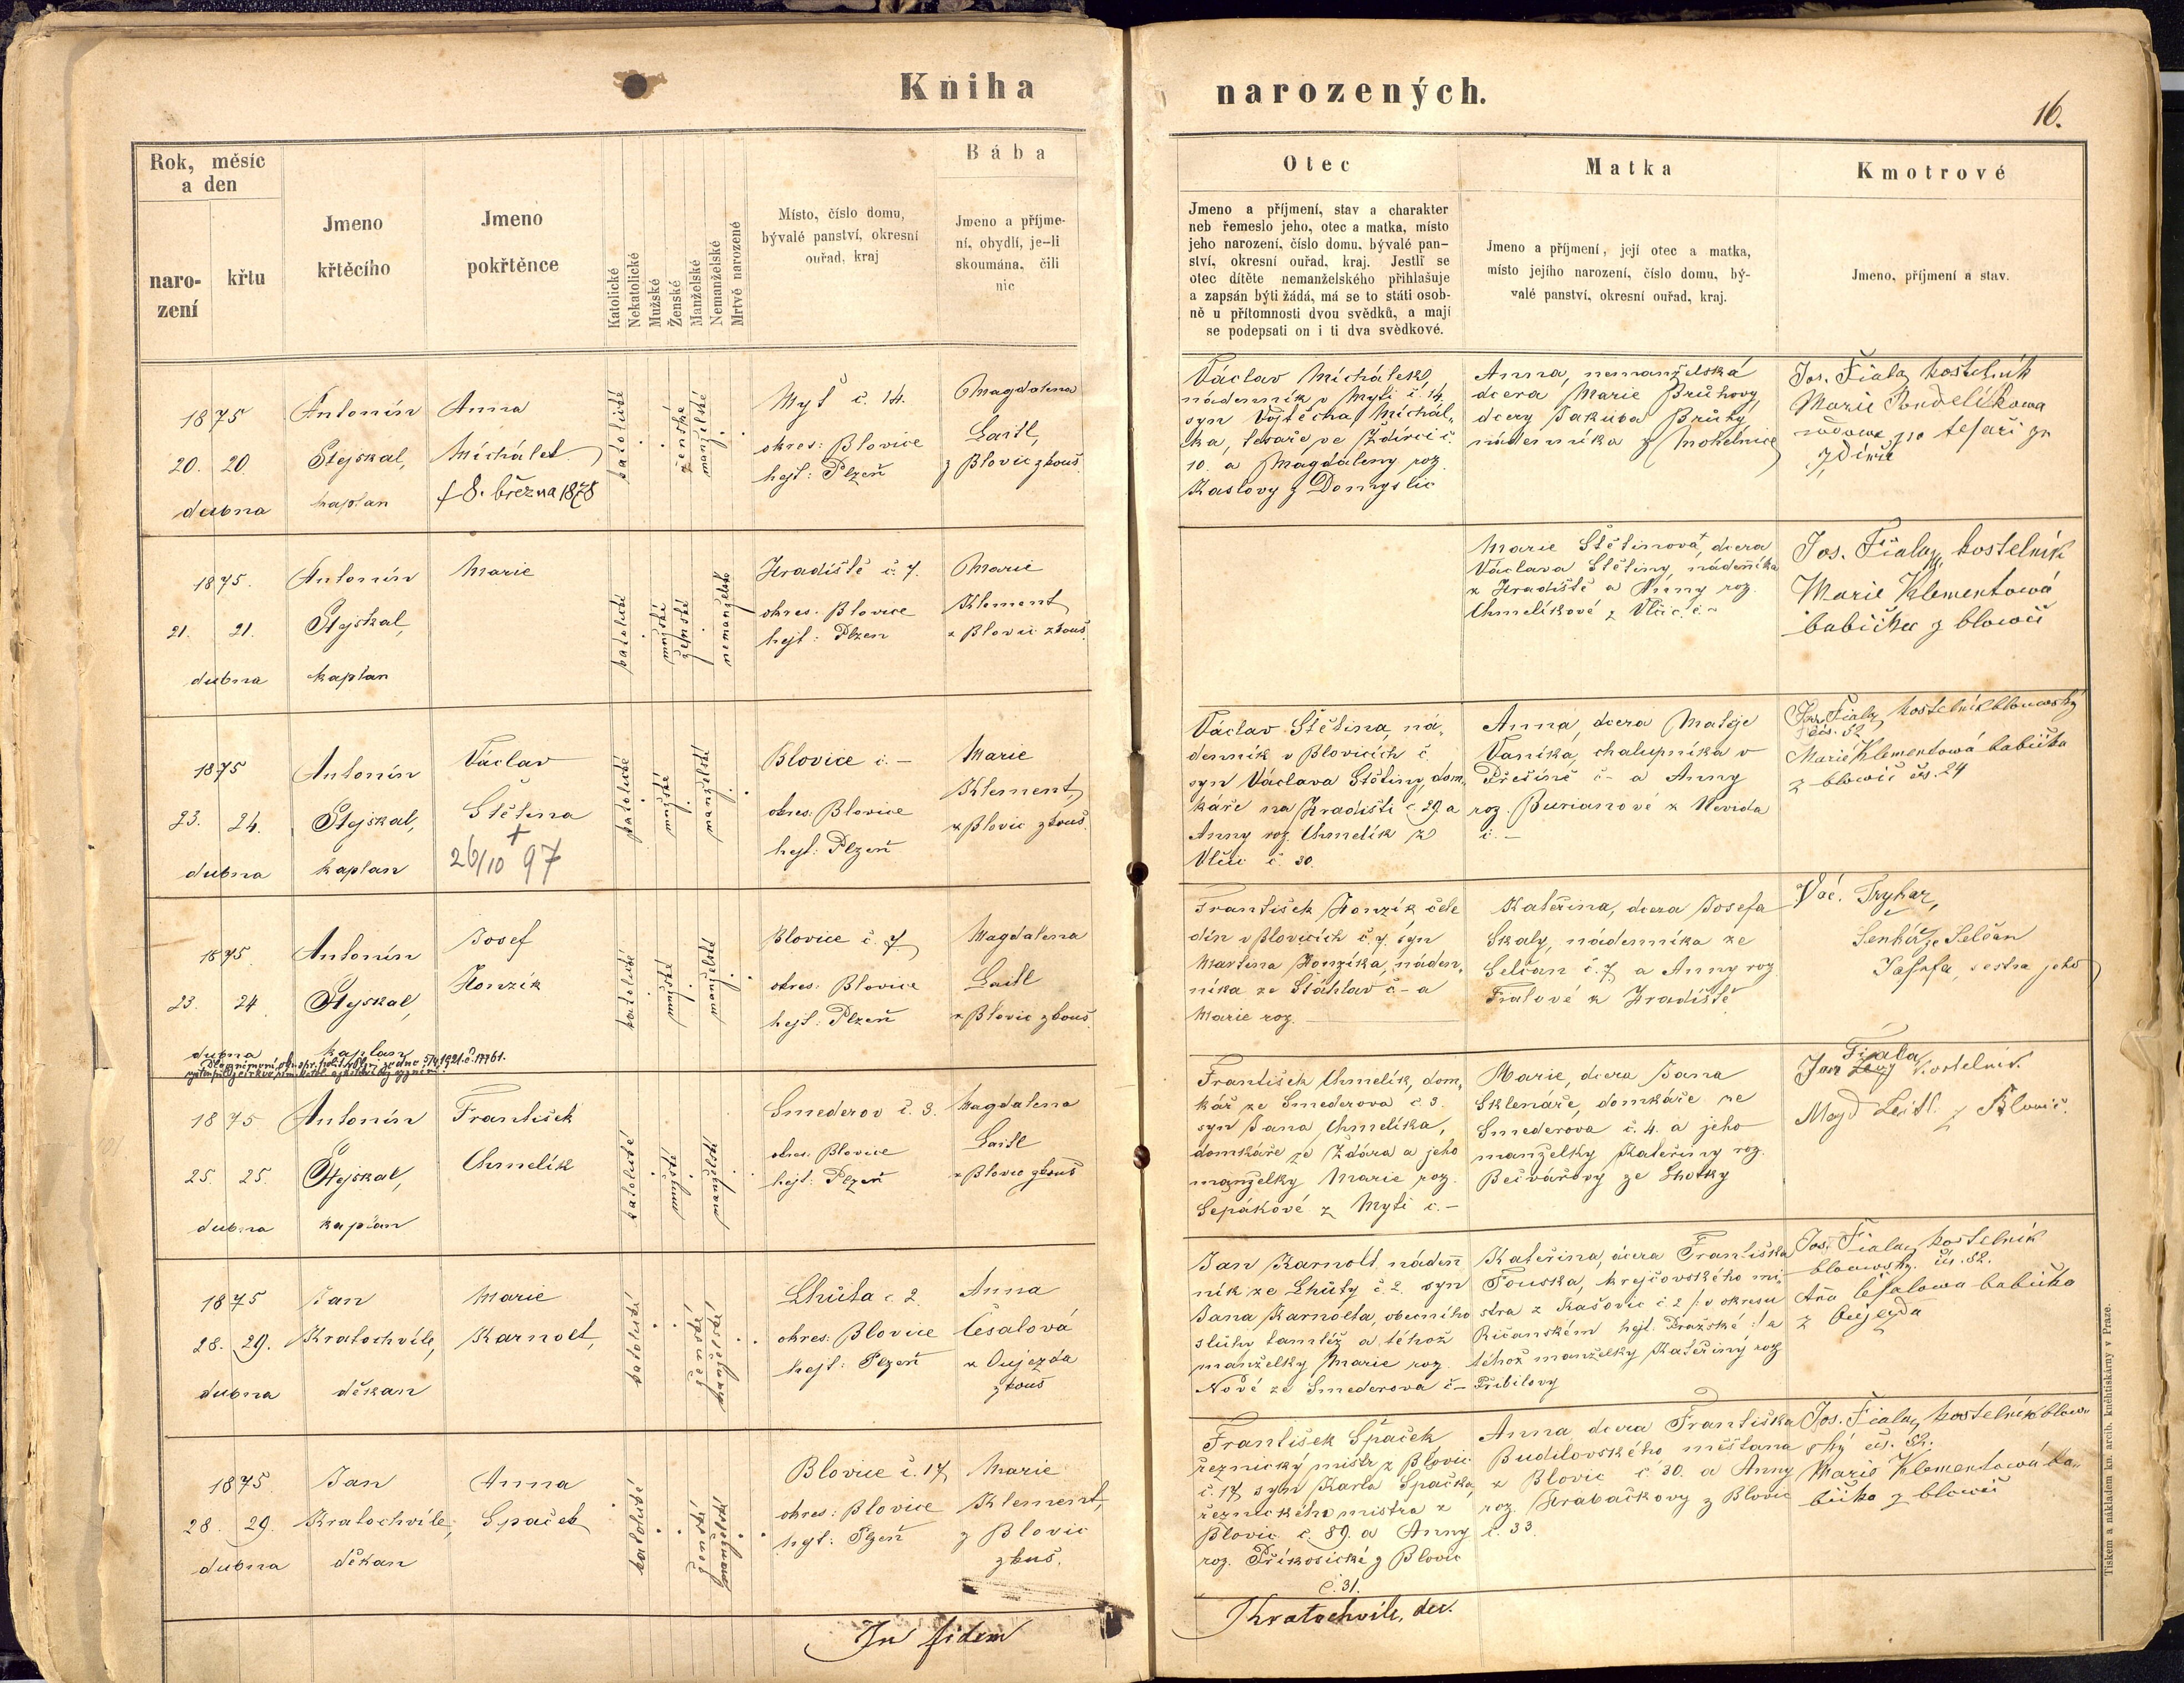 Kniha
narozených.
16.
Rok, měsíc
a den
naro-
zení
křtu
Jmeno
křtěcího
Jmeno
pokřtěnce
Katolické
Nekatolické
Mužské
Ženské
Manželské
Nemanželské
Mrtvě narozené
Místo, číslo domu,
bývalé panství, okresní
ouřad, kraj
Bába
Jmeno a příjme-
ní, obydlí, je-li
skoumána, čili
nic
Otec
Jmeno a příjmení, stav a charakter
neb řemeslo jeho, otec a matka, místo
jeho narození, číslo domu, bývalé pan-
ství, okresní ouřad, kraj. Jestli se
otec dítěte nemanželského přihlašuje
a zapsán býti žádá, má se to státi osob-
ně u přítomnosti dvou svědků, a mají
se podepsati on i ti dva svědkové.
Matka
Jmeno a příjmení, její otec a matka,
místo jejího narození, číslo domu, bý-
valé panství, okresní ouřad, kraj.
Kmotrové
Jmeno, příjmení a stav.
1875
20. 20.
dubna
Antonín
Stejskal,
kaplan
Anna
Michálek
† 8. března 1878
katolické
ženské
manželské
Myť č. 14.
okres: Blovice
hejt: Plzeň
Magdalena
Laitl,
z Blovic zkouš.
Václav Michálek,
nádenník v Myti č. 14.
syn Vojtěcha Michál-
ka, tesaře ve Ždírci č.
10. a Magdaleny roz.
Kaslovy z Domyslic
Anna, nemanželská
dcera Marie Brůhovy,
dcery Jakuba Brůhy,
nádenníka z Mohelnice
Jos. Fiala, kostelník
Marie
1875.
21. 21.
dubna
Antonín
Stejskal,
kaplan
Marie
katolické
mužské
ženské
nemanželské
Hradiště č. 7.
okres. Blovice
hejt: Plzen
Marie
Klement
z Blovic zkouš.
Marie Štětinová, dcera
Václava Štětiny, nádeníka
z Hradiště a Anny roz.
Chmelíkové z Vlčic č. –
Jos. Fiala, kostelník
Marie Klementowá
babička z blowic
1875
23. 24.
dubna
Antonín
Stejskal,
kaplan
Václav
Štětina
+
26/10 97
katolické
mužské
manželské
Blovice č. –
okres. Blovice
hejt: Plzeň
Marie
Klement,
z Blovic zkouš.
Václav Štětina, ná-
denník v Blovicích č.
syn Václava Štětiny, dom-
káře na Hradišti č. 29. a
Anny roz. Chmelík z
Vlčic č. 30.
Anna, dcera Matěje
Vaníka, chalupníka v
Přešíně č – a Anny
roz. Burianové z Nevida
č. –
Jos. Fiala, kostelník blowowský
čís. 52
Marie Klementowá babička
z blowic čís. 24
1875
23. 24
dubna
Antonín
Stejskal,
kaplan
Josef
Honzík
katolické
mužské
manželské
Blovice č. 7.
okres: Blovice
hejt: Plzeň
Magdalena
Laitl
z Blovic zkouš.
František Honzík, čele
dín v Blovicích č. 7. syn
Martina Honzíka, náden-
níka ze Šťáhlav č – a
Marie roz.
Kateřina, dcera Josefa
Skaly, nádenníka ze
Selčan č. 7 a Anny roz.
Fialové z Hradiště
Vác. Tryhar,
sestra jeho
1875
25. 25.
dubna
Antonín
Stejskal,
kaplan
František
Chmelík
katolické
mužské
manželské
Smederov č. 3.
okres. Blovice
hejt: Plzeň
Magdalena
Laitl
z Blovic zkouš
František Chmelík, dom-
kář ze Smederova č 3.
syn Jana Chmelíka,
domkáře ze Ždára a jeho
manželky Marie roz.
Sepákové z Myti č. –
Marie, dcera Jana
Sklenáře, domkáře ze
Smederova č. 4. a jeho
manželky Kateřiny roz.
Bečvářovy ze Lhotky
Fiala
kostelník.
Magd Leitl. z Blowic.
1875
28. 29.
dubna
Jan
Kratochvíle,
děkan
Marie
Karnolt,
katolické
ženské
manželské
Lhůta č 2.
okres: Blovice
hejt: Plzeň
Anna
Česalová
z Oujezda
zkouš
Jan Karnolt, nádenn
ník ze Lhůty č. 2. syn
Jana Karnolta, obecního
sluhy tamtéž a téhož
manželky Marie roz.
Nové ze Smederova č –
Kateřina, dcera Františka
Fouska, krejčovského mi-
stra z Kašovic č 2 /: v okresu
Říčanském hejt. Pražské :/ a
téhož manželky Kateřiny roz
Přibilovy
Jos. Fiala, kostelník
blowowský. čís. 52.
Aňa Česalowa babička
z Aujezda
1875
28. 29.
dubna
Jan
Kratochvíle,
děkan
Anna
Spaček
katolické
ženské
manželské
Blovice č. 17,
okres: Blovice
hejt: Plzeň
Marie
Klement,
z Blovic
zkuš.
František Špaček
řeznický mistr z Blovic
č. 17, syn Karla Spačka,
řeznického mistra z
Blovic č. 89. a Anny
roz. Příkosické z Blovic
č. 31.
Anna dcera Františka
Budilovského, měšťana
z Blovic č. 30. a Anny
roz. Hrabačkovy z Blovic
č. 33.
Jos. Fiala, kostelník blowo
ský čís. 52.
Marie Klementowá ba-
bička z blowic
In fidem
Kratochvíle, děk.
Tiskem a nákladem kn. arcib. knihtiskárny v Praze.